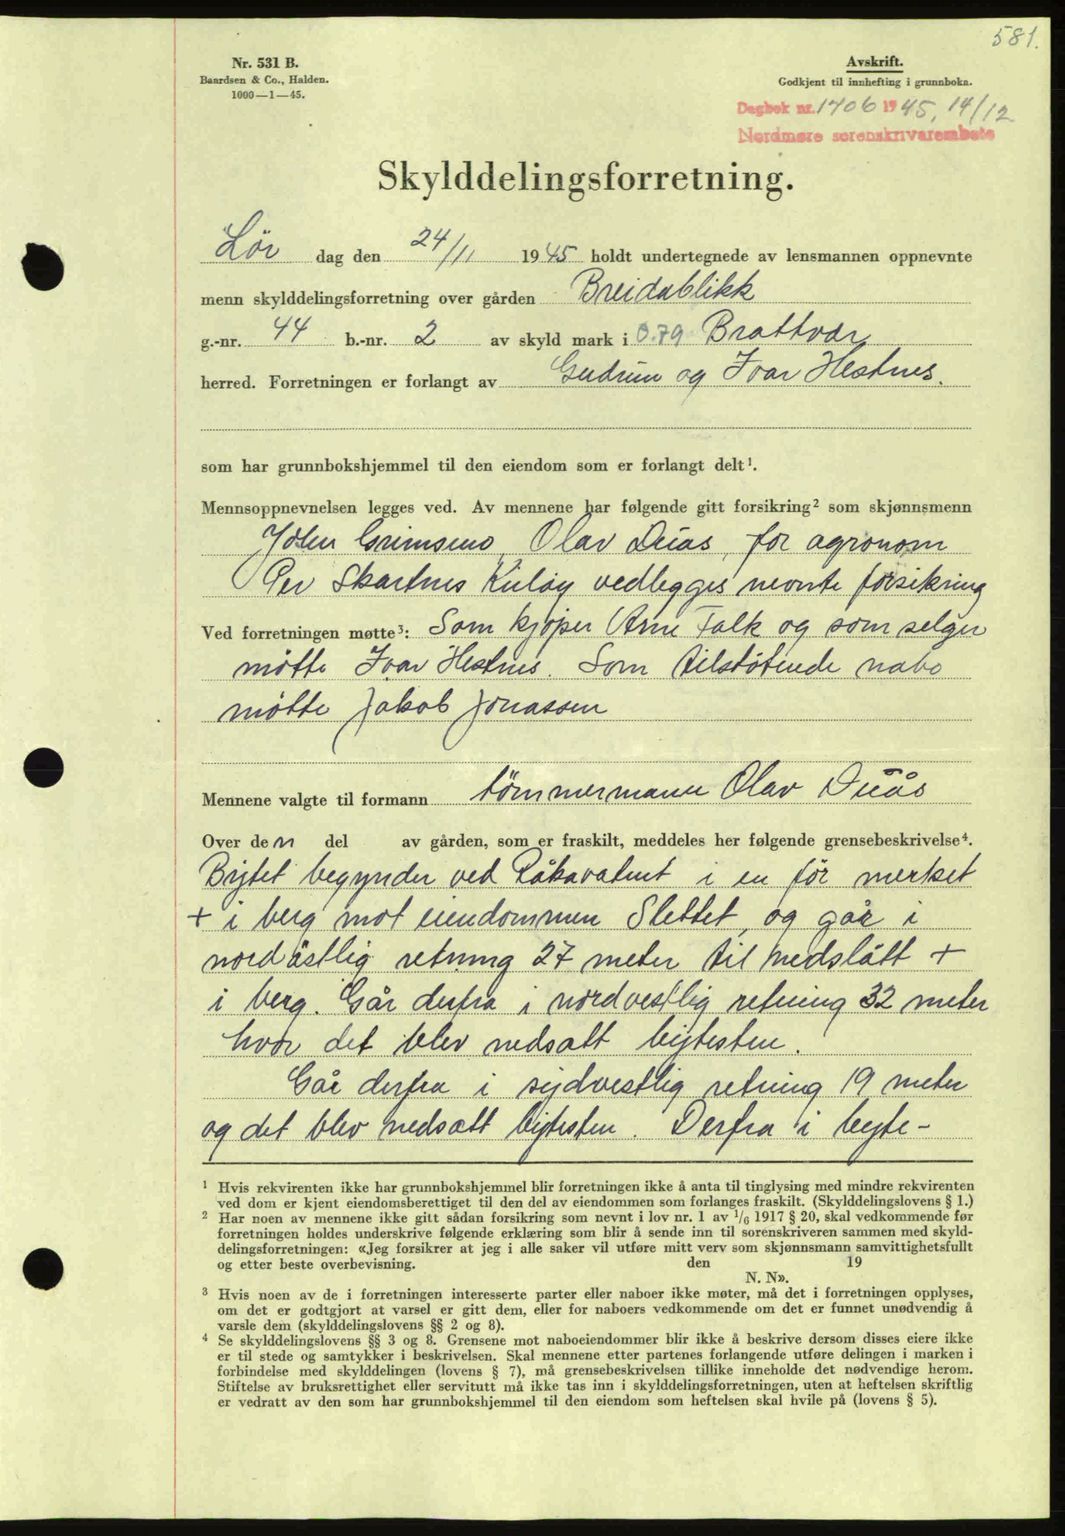 581.
Nr. 531 B.
Baardsen & Co., Halden.
1000—1—45.
Avskrift.
Godkjent til innhefting i grunnboka.
Dagbok nr. 1706 1945, 14/12
Nordmøre sorenskrivarembete
Skylddelingsforretning.
Lør dag den 24/11 1945 holdt undertegnede av lensmannen oppnevnte
menn skylddelingsforretning over gården Breidablikk
g.-nr. 44 b.-nr. 2 av skyld mark i 0.79 Brattvær
herred. Forretningen er forlangt av Gudrun og Ivar Hestnes.
som har grunnbokshjemmel til den eiendom som er forlangt delt¹.
Mennsoppnevnelsen legges ved. Av mennene har følgende gitt forsikring² som skjønnsmenn
John Grimsmo, Olav Duås, for agronom
Per Skartnes Kuløy vedlegges nevnte forsikring
Ved forretningen møtte³: Som kjøper Arne Falk og som selger
møtte Ivar Hestnes. Som tilstøtende nabo
møtte Jakob Jonassen
Mennene valgte til formann tömmermann Olav Duås
Over den del av gården, som er fraskilt, meddeles her følgende grensebeskrivelse⁴.
Bytet begynder ved Råkavatnet i en för merket
+ i berg mot eiendommen Slettet, og går i
nordöstlig retning 27 meter til nedslått +
i berg. Går derfra i nordvestlig retning 32 meter
hvor det blev nedsatt bytesten.
Går derfra i sydvestlig retning 19 meter
og det blev nedsatt bytesten. Derfra i byte-
¹ Hvis rekvirenten ikke har grunnbokshjemmel blir forretningen ikke å anta til tinglysing med mindre rekvirenten
ved dom er kjent eiendomsberettiget til den del av eiendommen som forlanges fraskilt. (Skylddelingslovens § 1.)
² Har noen av mennene ikke gitt sådan forsikring som nevnt i lov nr. 1 av 1/6 1917 § 20, skal vedkommende før
forretningen holdes underskrive følgende erklæring som blir å sende inn til sorenskriveren sammen med skyld-
delingsforretningen: «Jeg forsikrer at jeg i alle saker vil utføre mitt verv som skjønnsmann samvittighetsfullt
og etter beste overbevisning. den 19
N. N».
³ Hvis noen av de i forretningen interesserte parter eller naboer ikke møter, må det i forretningen opplyses,
om det er godtgjort at varsel er gitt dem, eller for naboers vedkommende om det er funnet unødvendig å
varsle dem (skylddelingslovens §§ 2 og 8).
⁴ Se skylddelingslovens §§ 3 og 8. Grensene mot naboeiendommer blir ikke å beskrive dersom disses eiere ikke
er til stede og samtykker i beskrivelsen. Skal mennene etter partenes forlangende utføre delingen i marken i
forbindelse med skylddelingen (lovens § 7), må grensebeskrivelsen tillike inneholde det nødvendige herom.
Stiftelse av bruksrettighet eller servitutt må ikke tas inn i skylddelingsforretningen, uten at heftelsen skriftlig
er vedratt av den som har grunnbokshjemmel til den eiendom som heftelsen skal hvile på (lovens § 5).